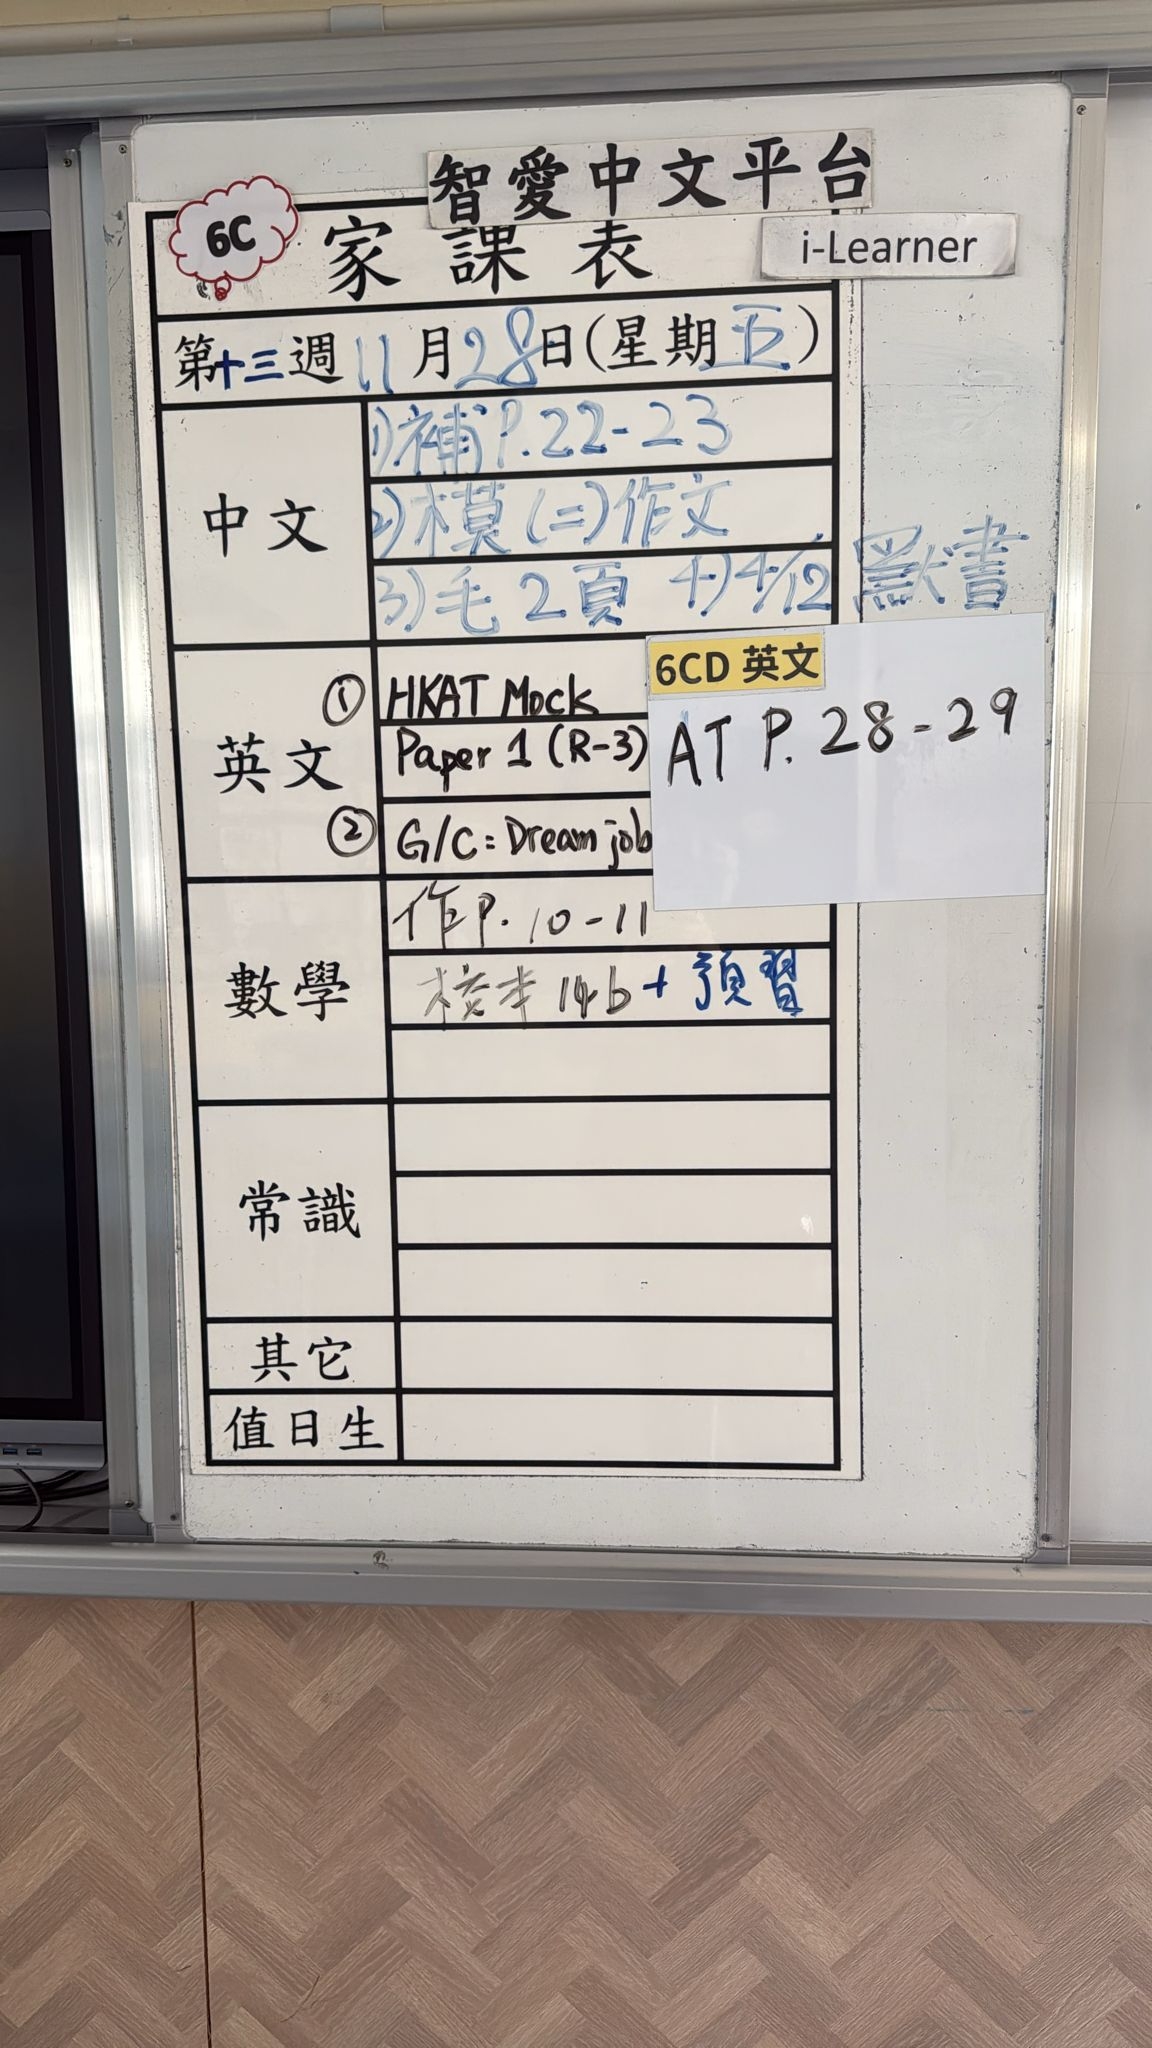 智愛中文平台
6C
家課表
i-Learner
第十三週 11月28日(星期五)
中文
1)補P.22-23
2)模(二)作文
3)毛2頁 4)4/12 默書
英文
① HKAT Mock
Paper 1 (R-3)
② G/C: Dream job
6CD 英文
AT P. 28-29
數學
作P. 10-11
校本 14b + 預習
常識
其它
值日生